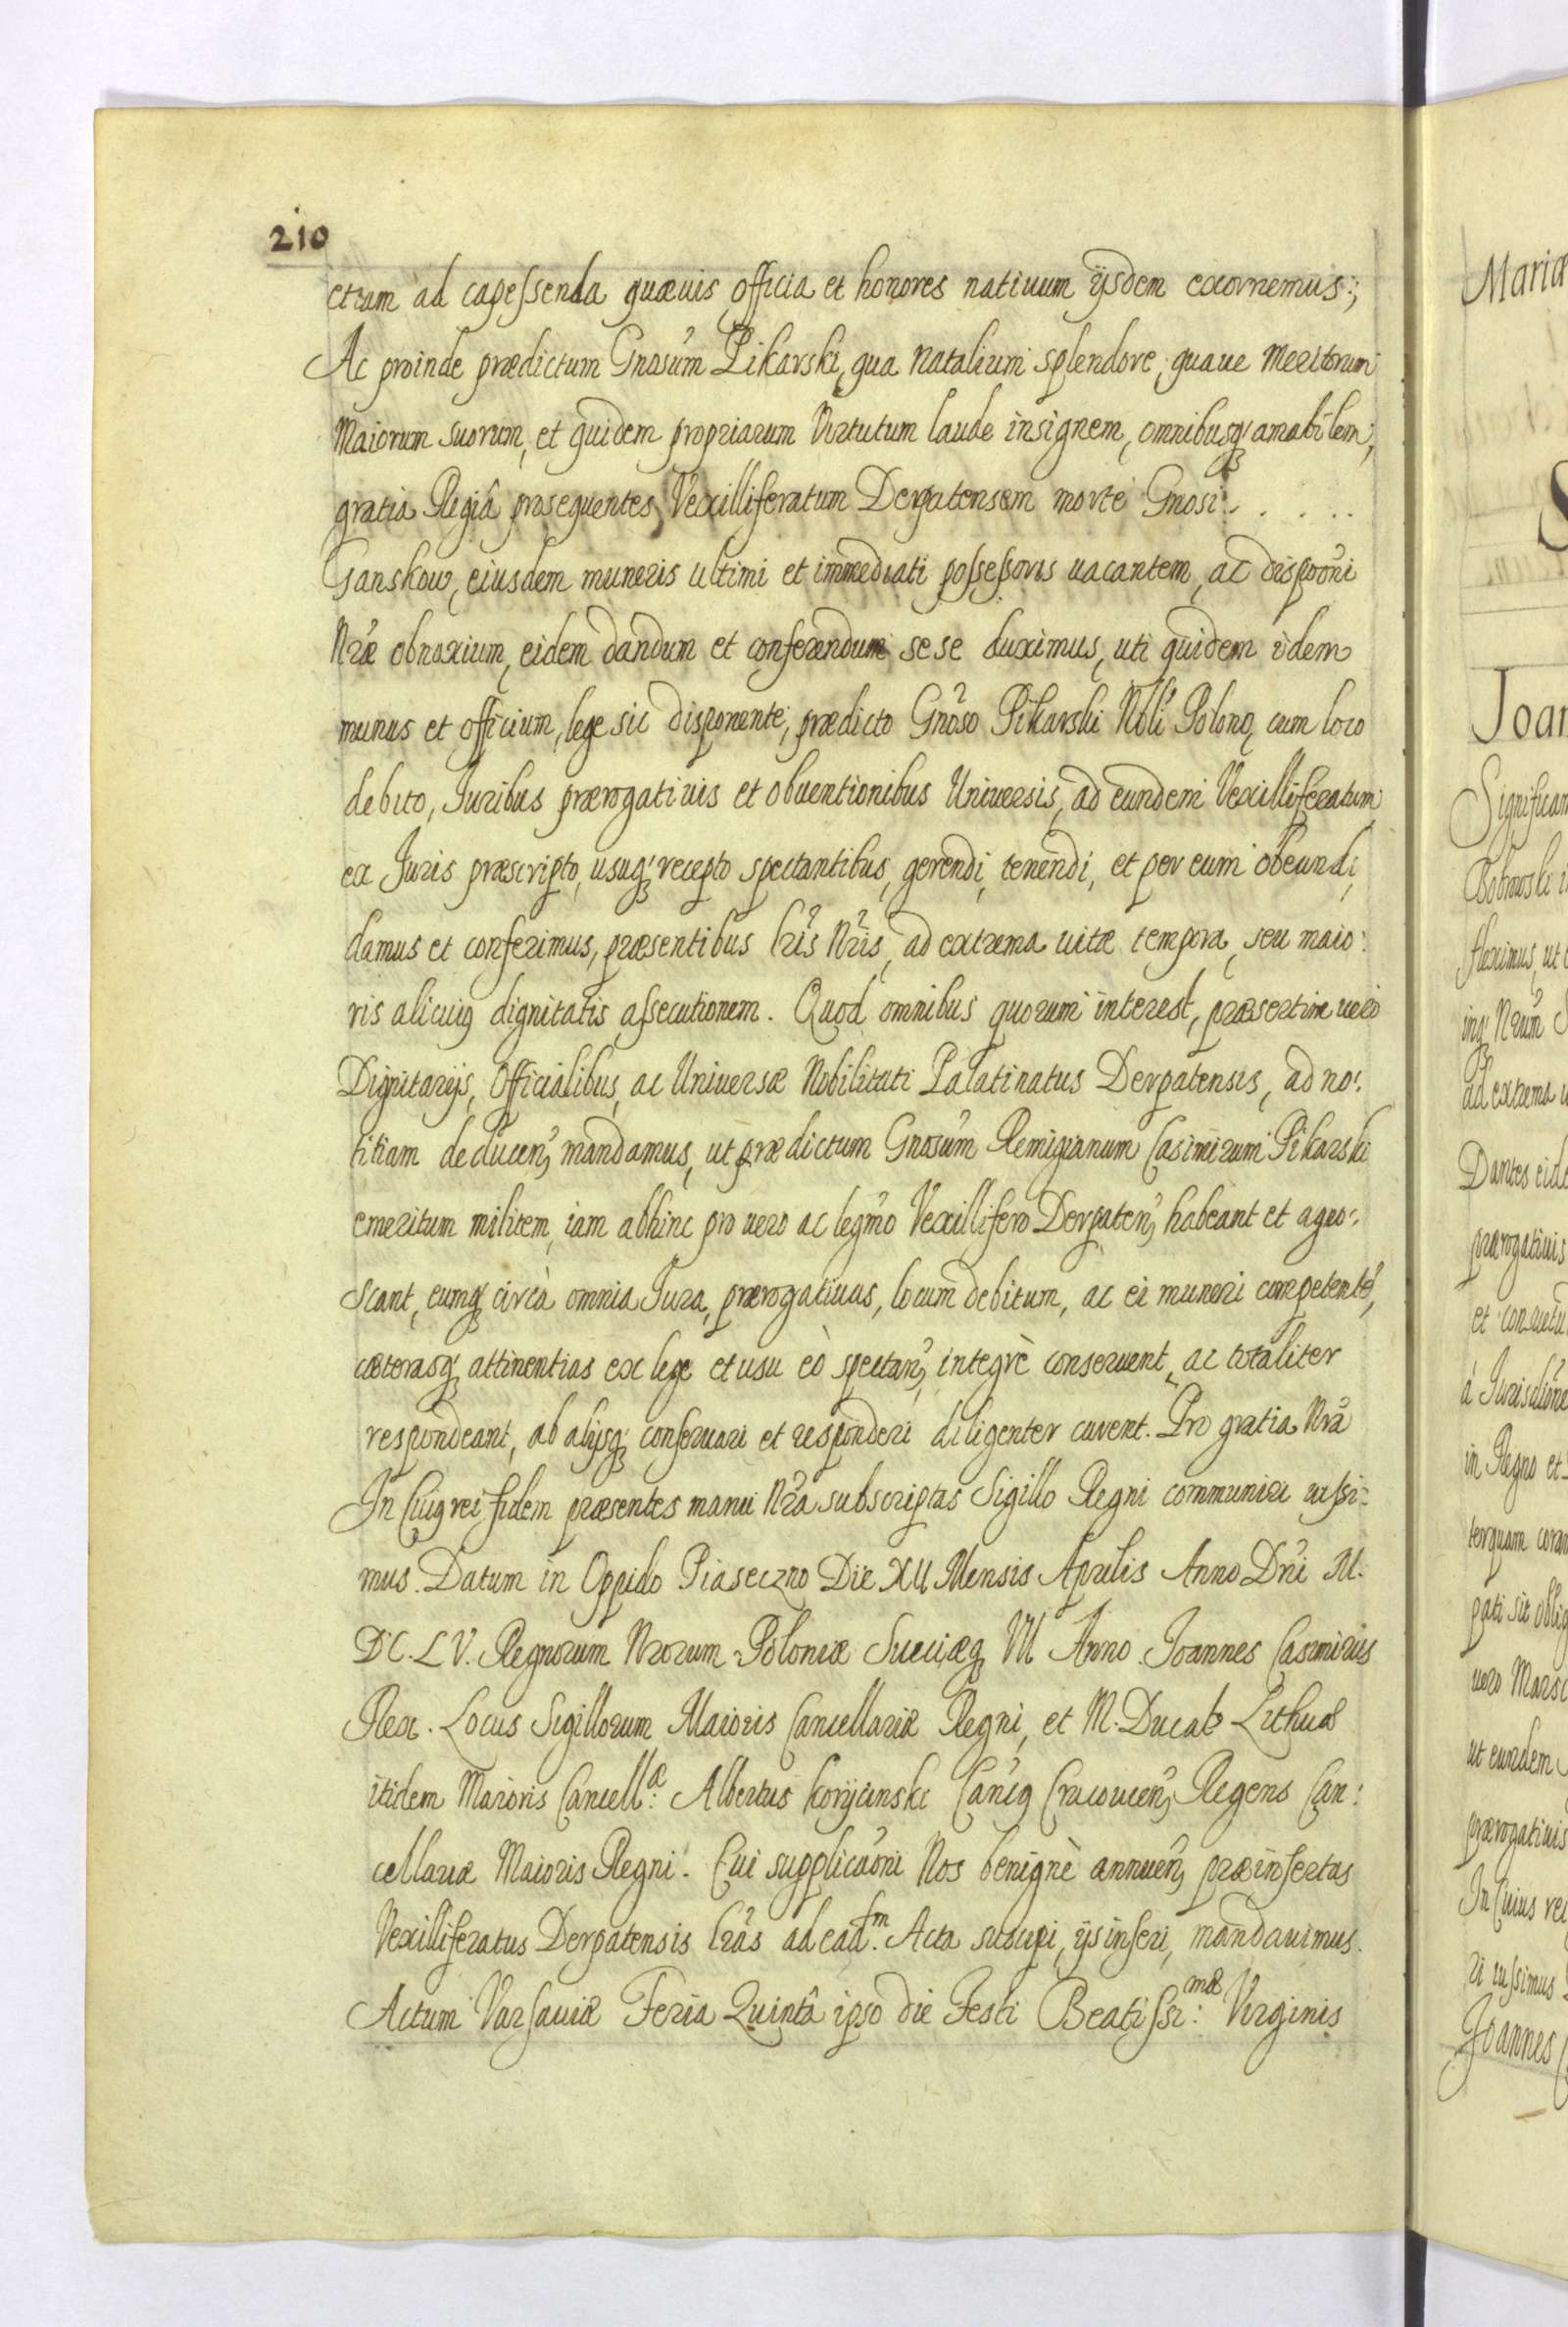 210
etiam ad capessenda quæuis officia et honores natiuum ijsdem exornemus:,
Ac proinde prædictum Gnosum Pikarski, qua Natalium splendore, quaue Meritorum
Maiorum suorum, et quidem propriarum Virtutum laude insignem, omnibusq amabilem,
gratia Regiâ prosequentes, Vexilliferatum Derpatensem morte Gnosi . . . . .
Ganskow, eiusdem muneris ultimi et immediati possessoris uacantem, ac disponi
Nræ obnoxium, eidem dandum et conferendum sese duximus, uti quidem idem
munus et officium, lege sic disponente, prædicto Gnoso Pikarski Nbli Polono, cum loco
debito, Iuribus prærogatiuis et obuentionibus Uniuersis, ad eundem Vexilliferatum
ex Iuris præscripto, usuq recepto spectantibus, gerendi, tenendi, et per eum obeundi,
damus et conferimus, præsentibus lris Nris, ad extrema uitæ tempora, seu maio:
ris alicuiq dignitatis assecutionem. Quod omnibus quorum interest, præsertim uero
Dignitarijs, Officialibus, ac Uniuersæ Nobilitati Palatinatus Derpatensis, ad no:
titiam deducen, mandamus, ut prædictum Gnosum Remigianum Casimirum Pikarski
emeritum militem, iam abhinc pro uero ac legmo Vexillifero Derpaten, habeant et agno:
scant, eumq circà omnia Iura, prærogatiuas, locum debitum, ac ei muneri competente,
cæterasq attinentias ex lege et usu eò spectan, integrè conseruent, ac totaliter
respondeant, ab alijsq conseruari et responderi diligenter curent. Pro gratia Nra
In Cuiq rei fidem præsentes manu Nra subscriptas Sigillo Regni communiri iussi:
mus. Datum in Oppido Piaseczno Die XII Mensis Aprilis Anno Dni M.
DC. LV. Regnorum Nrorum Poloniæ Sueciæq VII Anno. Joannes Casimirus
Rex. Locus Sigillorum Maioris Cancellariæ Regni, et M. Ducat, Lithuæ
itidem Maioris Cancell:æ Albertus Koryciński Canciq Cracouien, Regens Can:
cellariæ Maioris Regni. Cui supplicaoni Nos benignè annuen, præinsertas
Vexilliferatus Derpatensis lras ad ead:m Acta suscipi, ijs inseri, mandauimus.
Actum Varsauiæ Feria Quintâ ipso die Festi Beatissi:mæ Virginis
Mariæ
Joan
Significam
Bobrowski
fleximus, ut
inq Nrum
ad extrema u
Dantes eide
prærogatiuis
et consuetu
à Iurisdione
in Regno et
terquam coram
pati sit oblig
uero Marsc
ut eundem
prærogatiuis
In Cuius rei
ri iussimus
Joannes